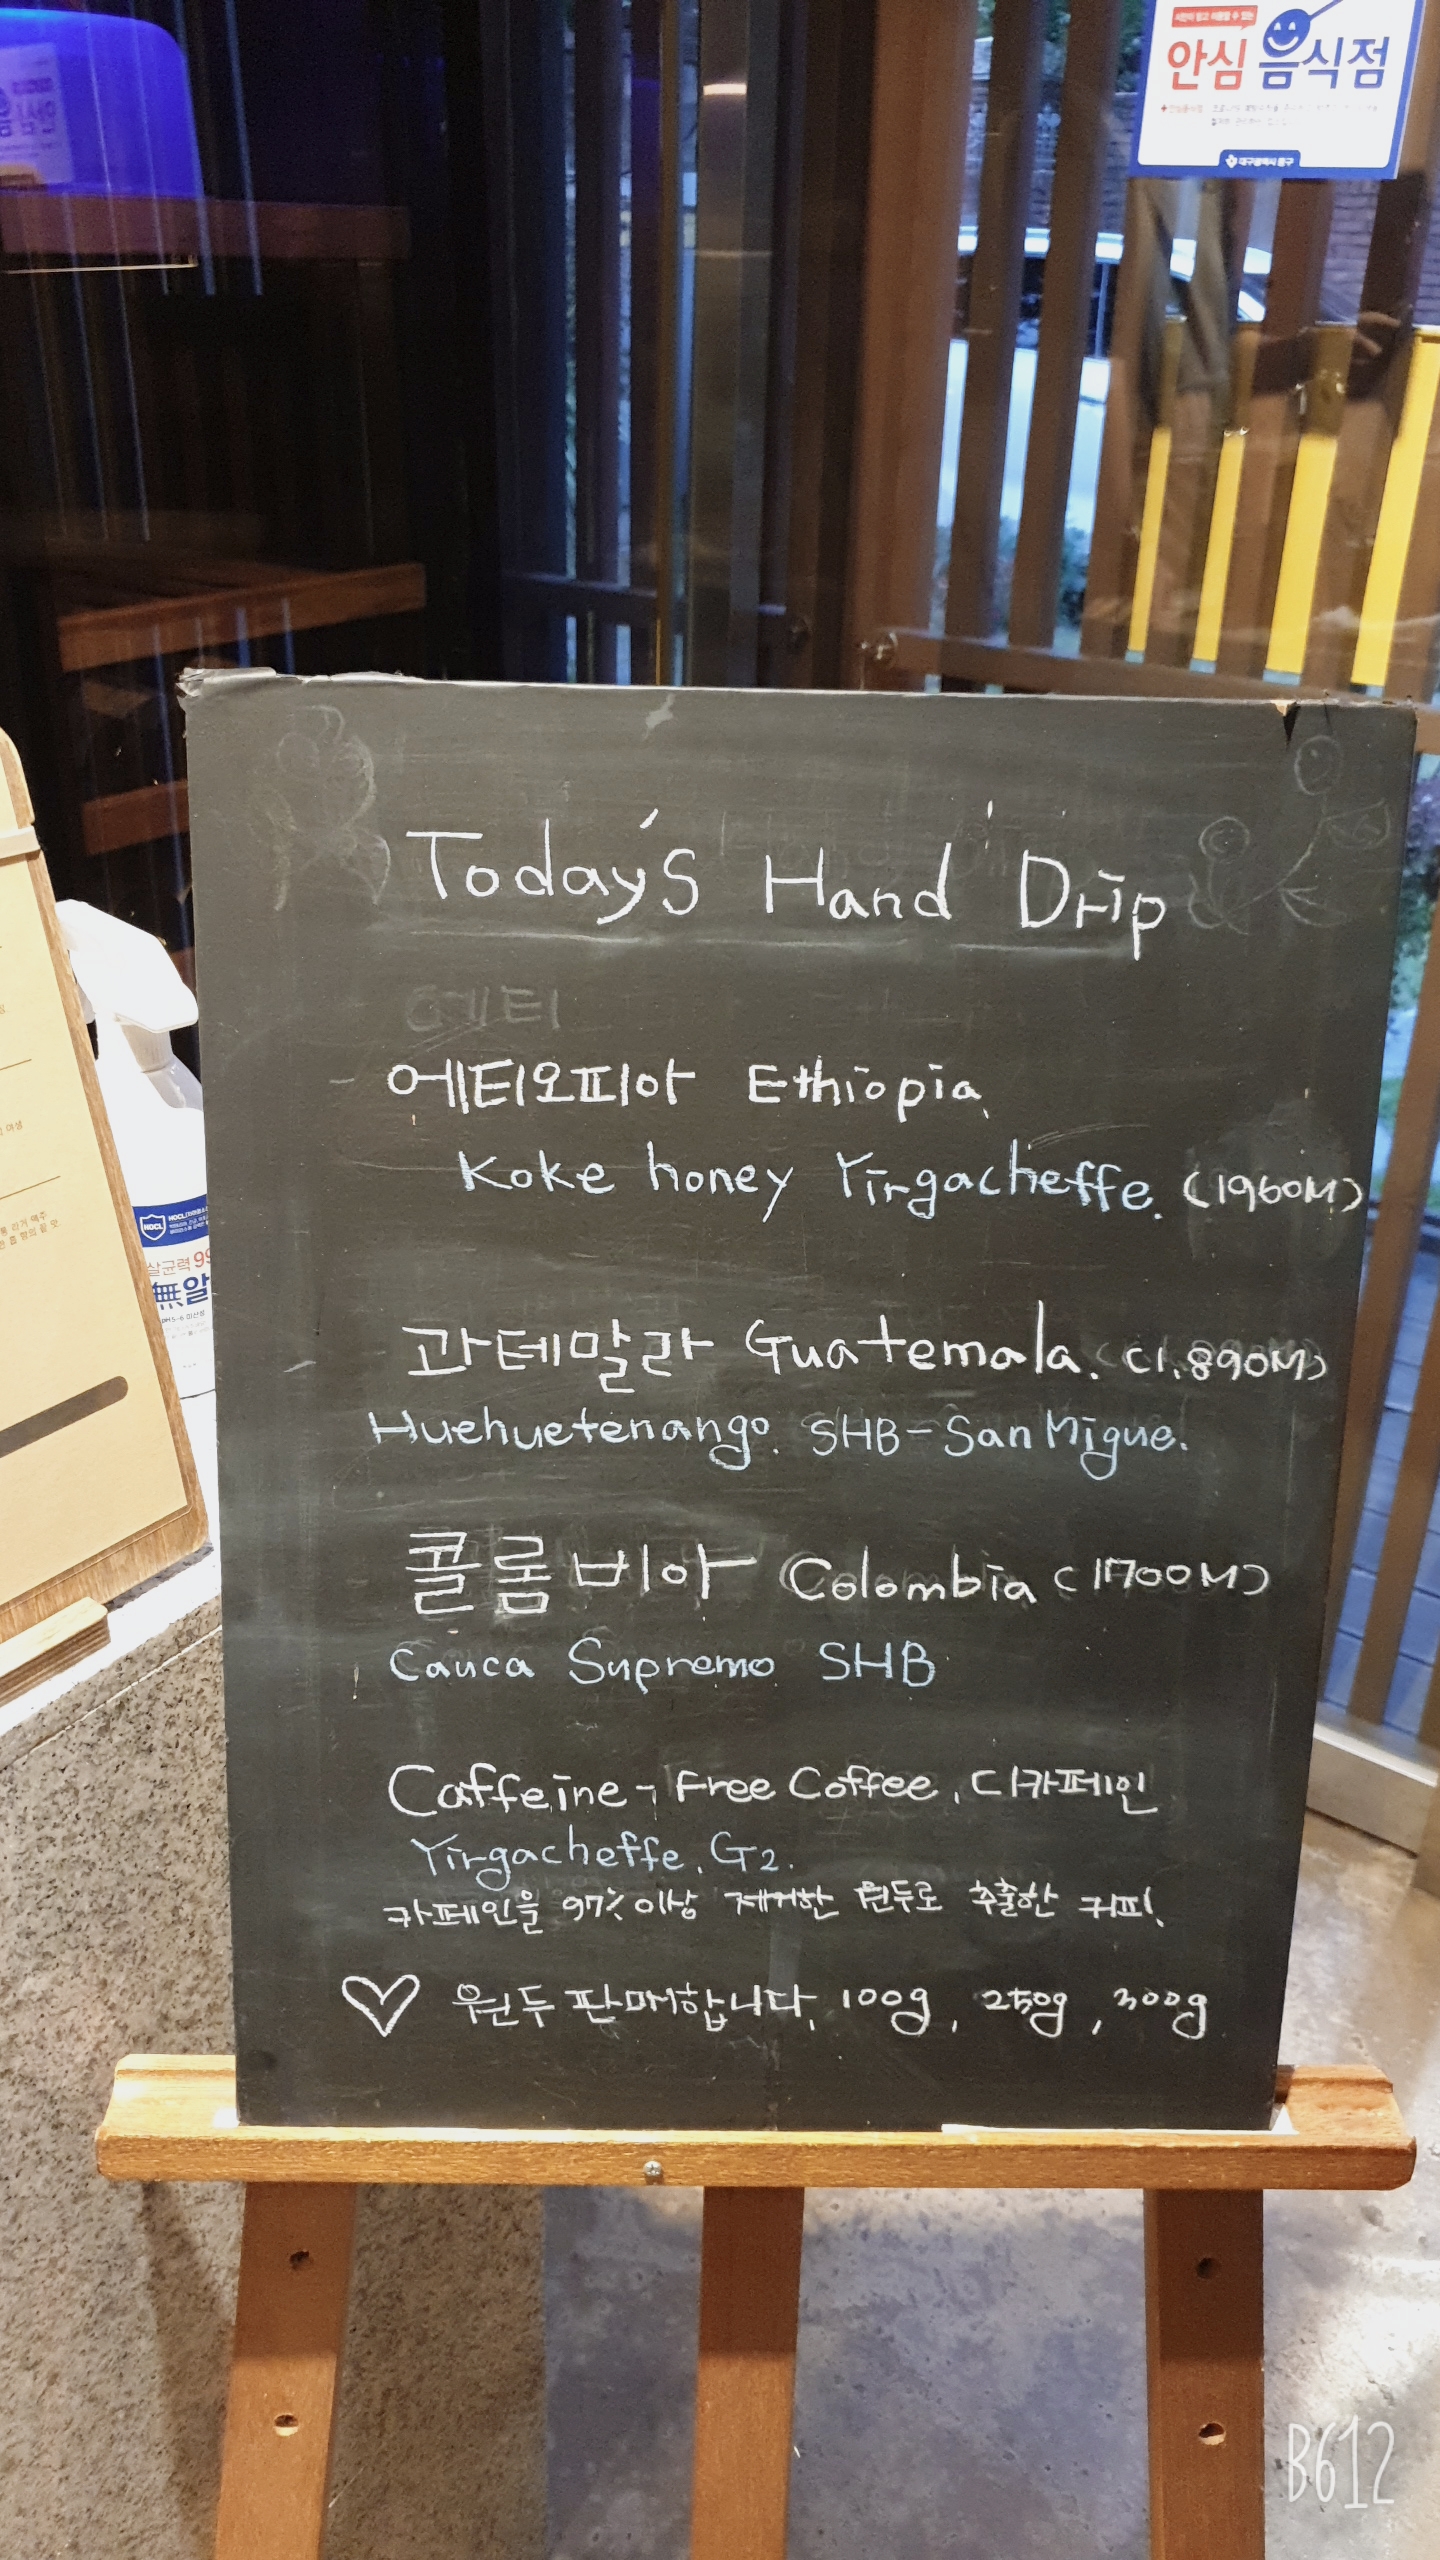 안심 음식점
대구광역시 중구
Today's Hand Drip
에티
에티오피아 Ethiopia
Koke honey Yirgacheffe. (1960M)
과테말라 Guatemala. (1,890M)
Huehuetenango. SHB-San Migue.
콜롬비아 Colombia (1700M)
Cauca Supremo SHB
Caffeine-Free Coffee, 디카페인
Yirgacheffe. G2.
카페인을 97% 이상 제거한 원두로 추출한 커피.
♡ 원두 판매합니다. 100g, 250g, 300g
HOCL
살균력 99
無알
B612